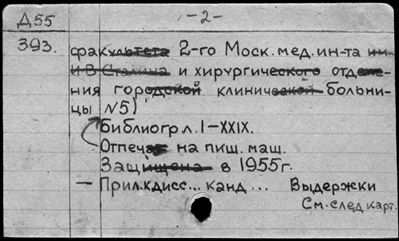 Д55 -2-
393. факультета 2-го Моск. мед. ин-та им.
И.В. Сталина и хирургического отделе-
ния городской клинической больни-
цы №5)
Библиогр л. I-XXIX.
Отпечат на пиш. маш.
Защищена в 1955г.
— Прил. к дисс... канд... Выдержки
См. след карт.